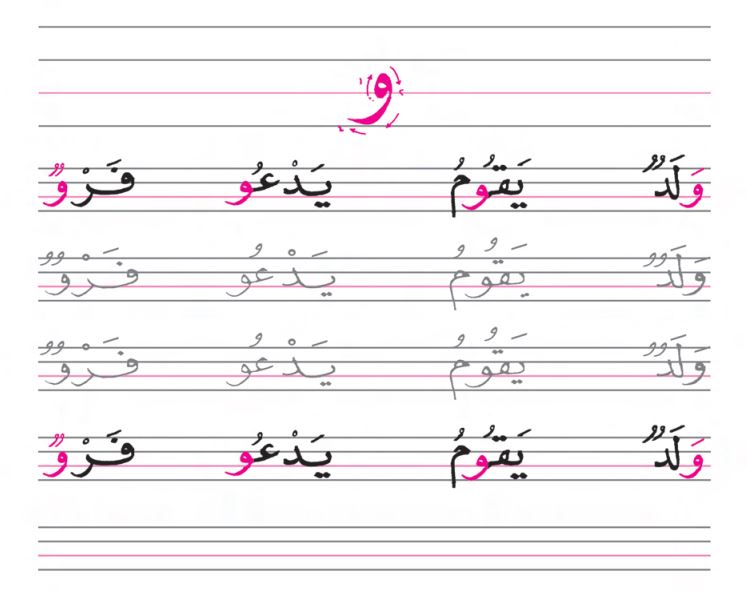 و
وَلَدٌ يَقُومُ يَدْعُو فَرْوٌ
وَلَدٌ يَقُومُ يَدْعُو فَرْوٌ
وَلَدٌ يَقُومُ يَدْعُو فَرْوٌ
وَلَدٌ يَقُومُ يَدْعُو فَرْوٌ